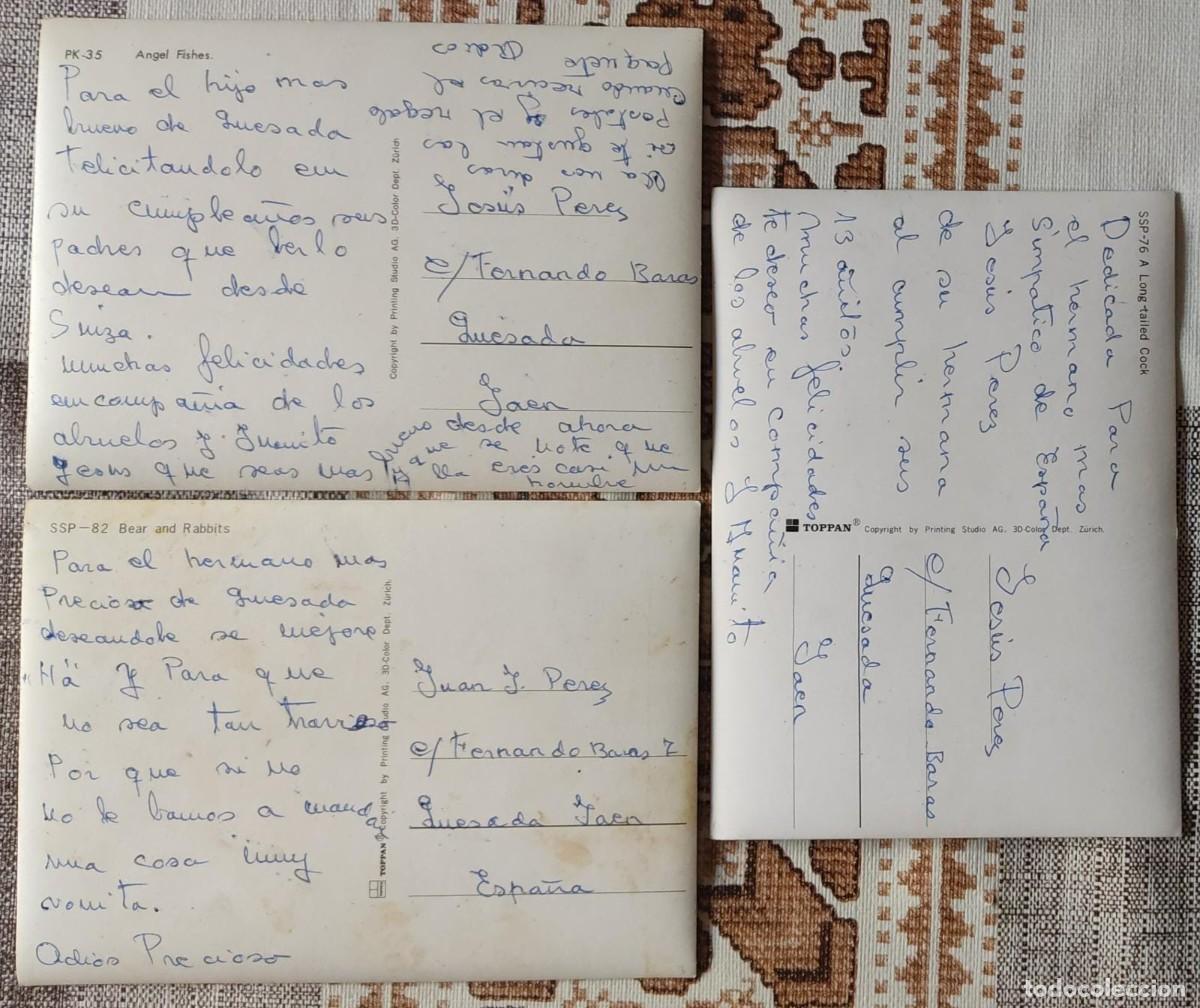 PK-35 Angel Fishes.
Para el hijo mas
bueno de Quesada
Felicitandolo em
su cumpleaños sus
padres que berlo
desean desde
Suiza.
munchas felicidades
em compañia de los
abuelos y Juanito
Jesus que seas mas
bueno desde ahora
y que se note que
lla eres casi un
hombre
Jesús Perez
c/ Fernando Baras
Quesada
Jaen
Lla nos diras
si te gustan las
Postales y el regalo
Cuando recivas el
Paquete
Adios
Copyright by Printing Studio AG. 3D-Color Dept. Zürich
SSP-82 Bear and Rabbits
Para el hermano mas
Precioso de Quesada
deseandole se mejore
Há y Para que
no sea tan travieso
Por que si no
no le bamos a mandar
una cosa muy
vonita.
Adios Precioso
Juan J. Perez
c/ Fernando Baras 7
Quesada Jaen
España
TOPPAN® Copyright by Printing Studio AG. 3D-Color Dept. Zürich.
SSP-76 A Long-tailed Cock
Dedicada Para
el hermano mas
Simpatico de España
Jesús Perez
de su hermana
al cumplir sus
13 añitos.
munchas felicidades
te deseo en compañia
de los abuelos y Juanito
TOPPAN® Copyright by Printing Studio AG. 3D-Color Dept. Zürich.
Jesús Perez
c/ Fernando Baras
Quesada
Jaen
todocoleccion